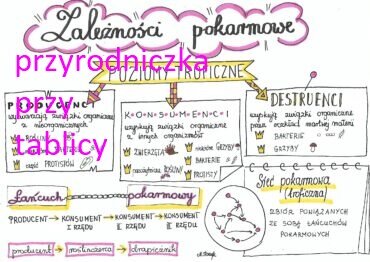 Zależności pokarmowe
przyrodniczka
przy
tablicy
POZIOMY TROFICZNE
PRODUCENCI
wytwarzają związki organiczne
z nieorganicznych
ROŚLINY
część PROTISTÓW
KONSUMENCI
uzyskują związki organiczne
z innych organizmów
ZWIERZĘTA
niektóre GRZYBY
BAKTERIE
PROTISTY
DESTRUENCI
uzyskują związki organiczne
przez rozkład martwej materii
BAKTERIE
GRZYBY
Łańcuch pokarmowy
PRODUCENT → KONSUMENT I RZĘDU → KONSUMENT II RZĘDU → KONSUMENT III RZĘDU
producent → roślinożerca → drapieżnik
Sieć pokarmowa
(troficzna)
ZBIÓR POWIĄZANYCH
ZE SOBĄ ŁAŃCUCHÓW
POKARMOWYCH